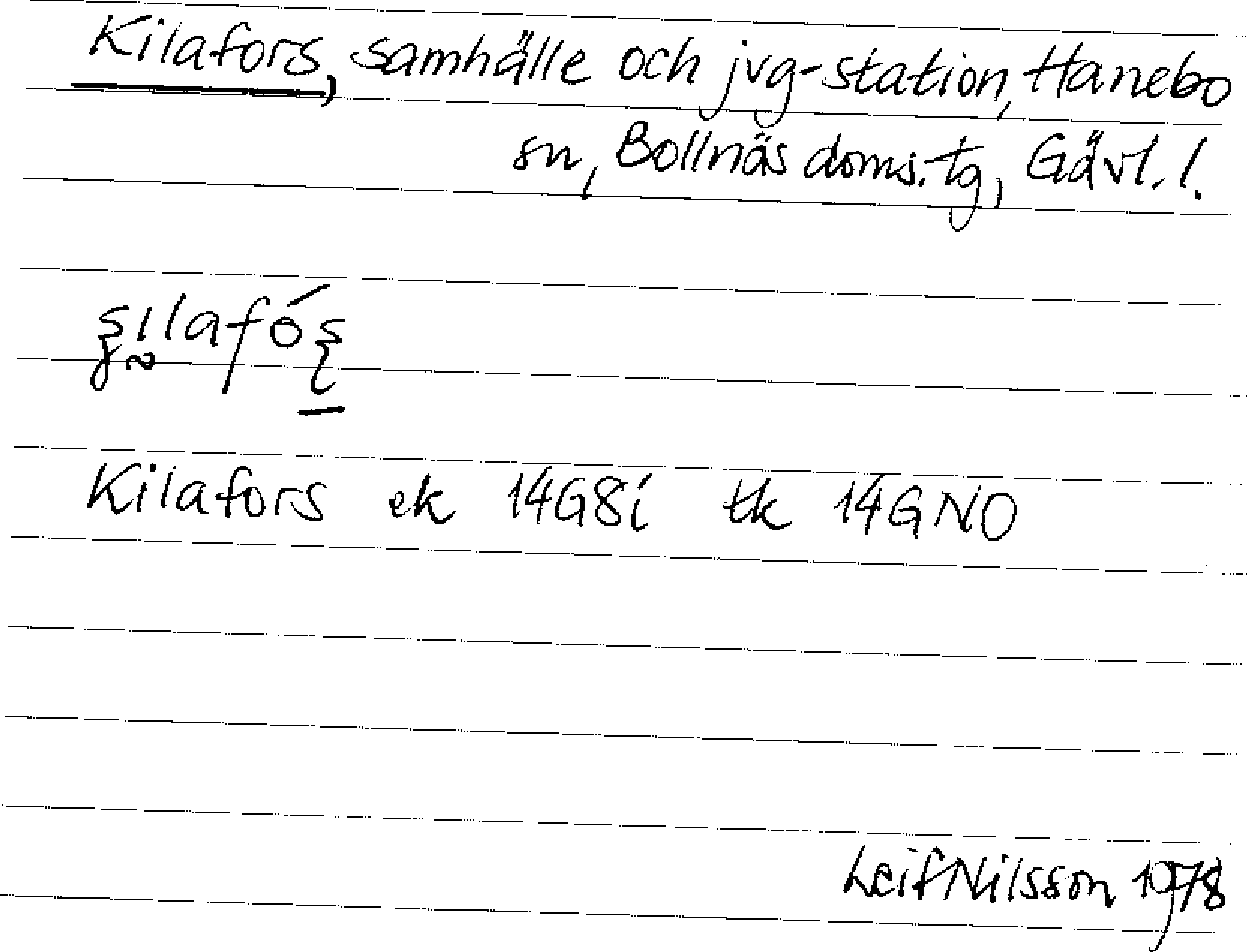 Kilafors, samhälle och jvg-station, Hanebo
sn, Bollnäs doms.tg, Gävl. l.
Kilafors ek 14G8i tk 14GNO
Leif Nilsson 1978